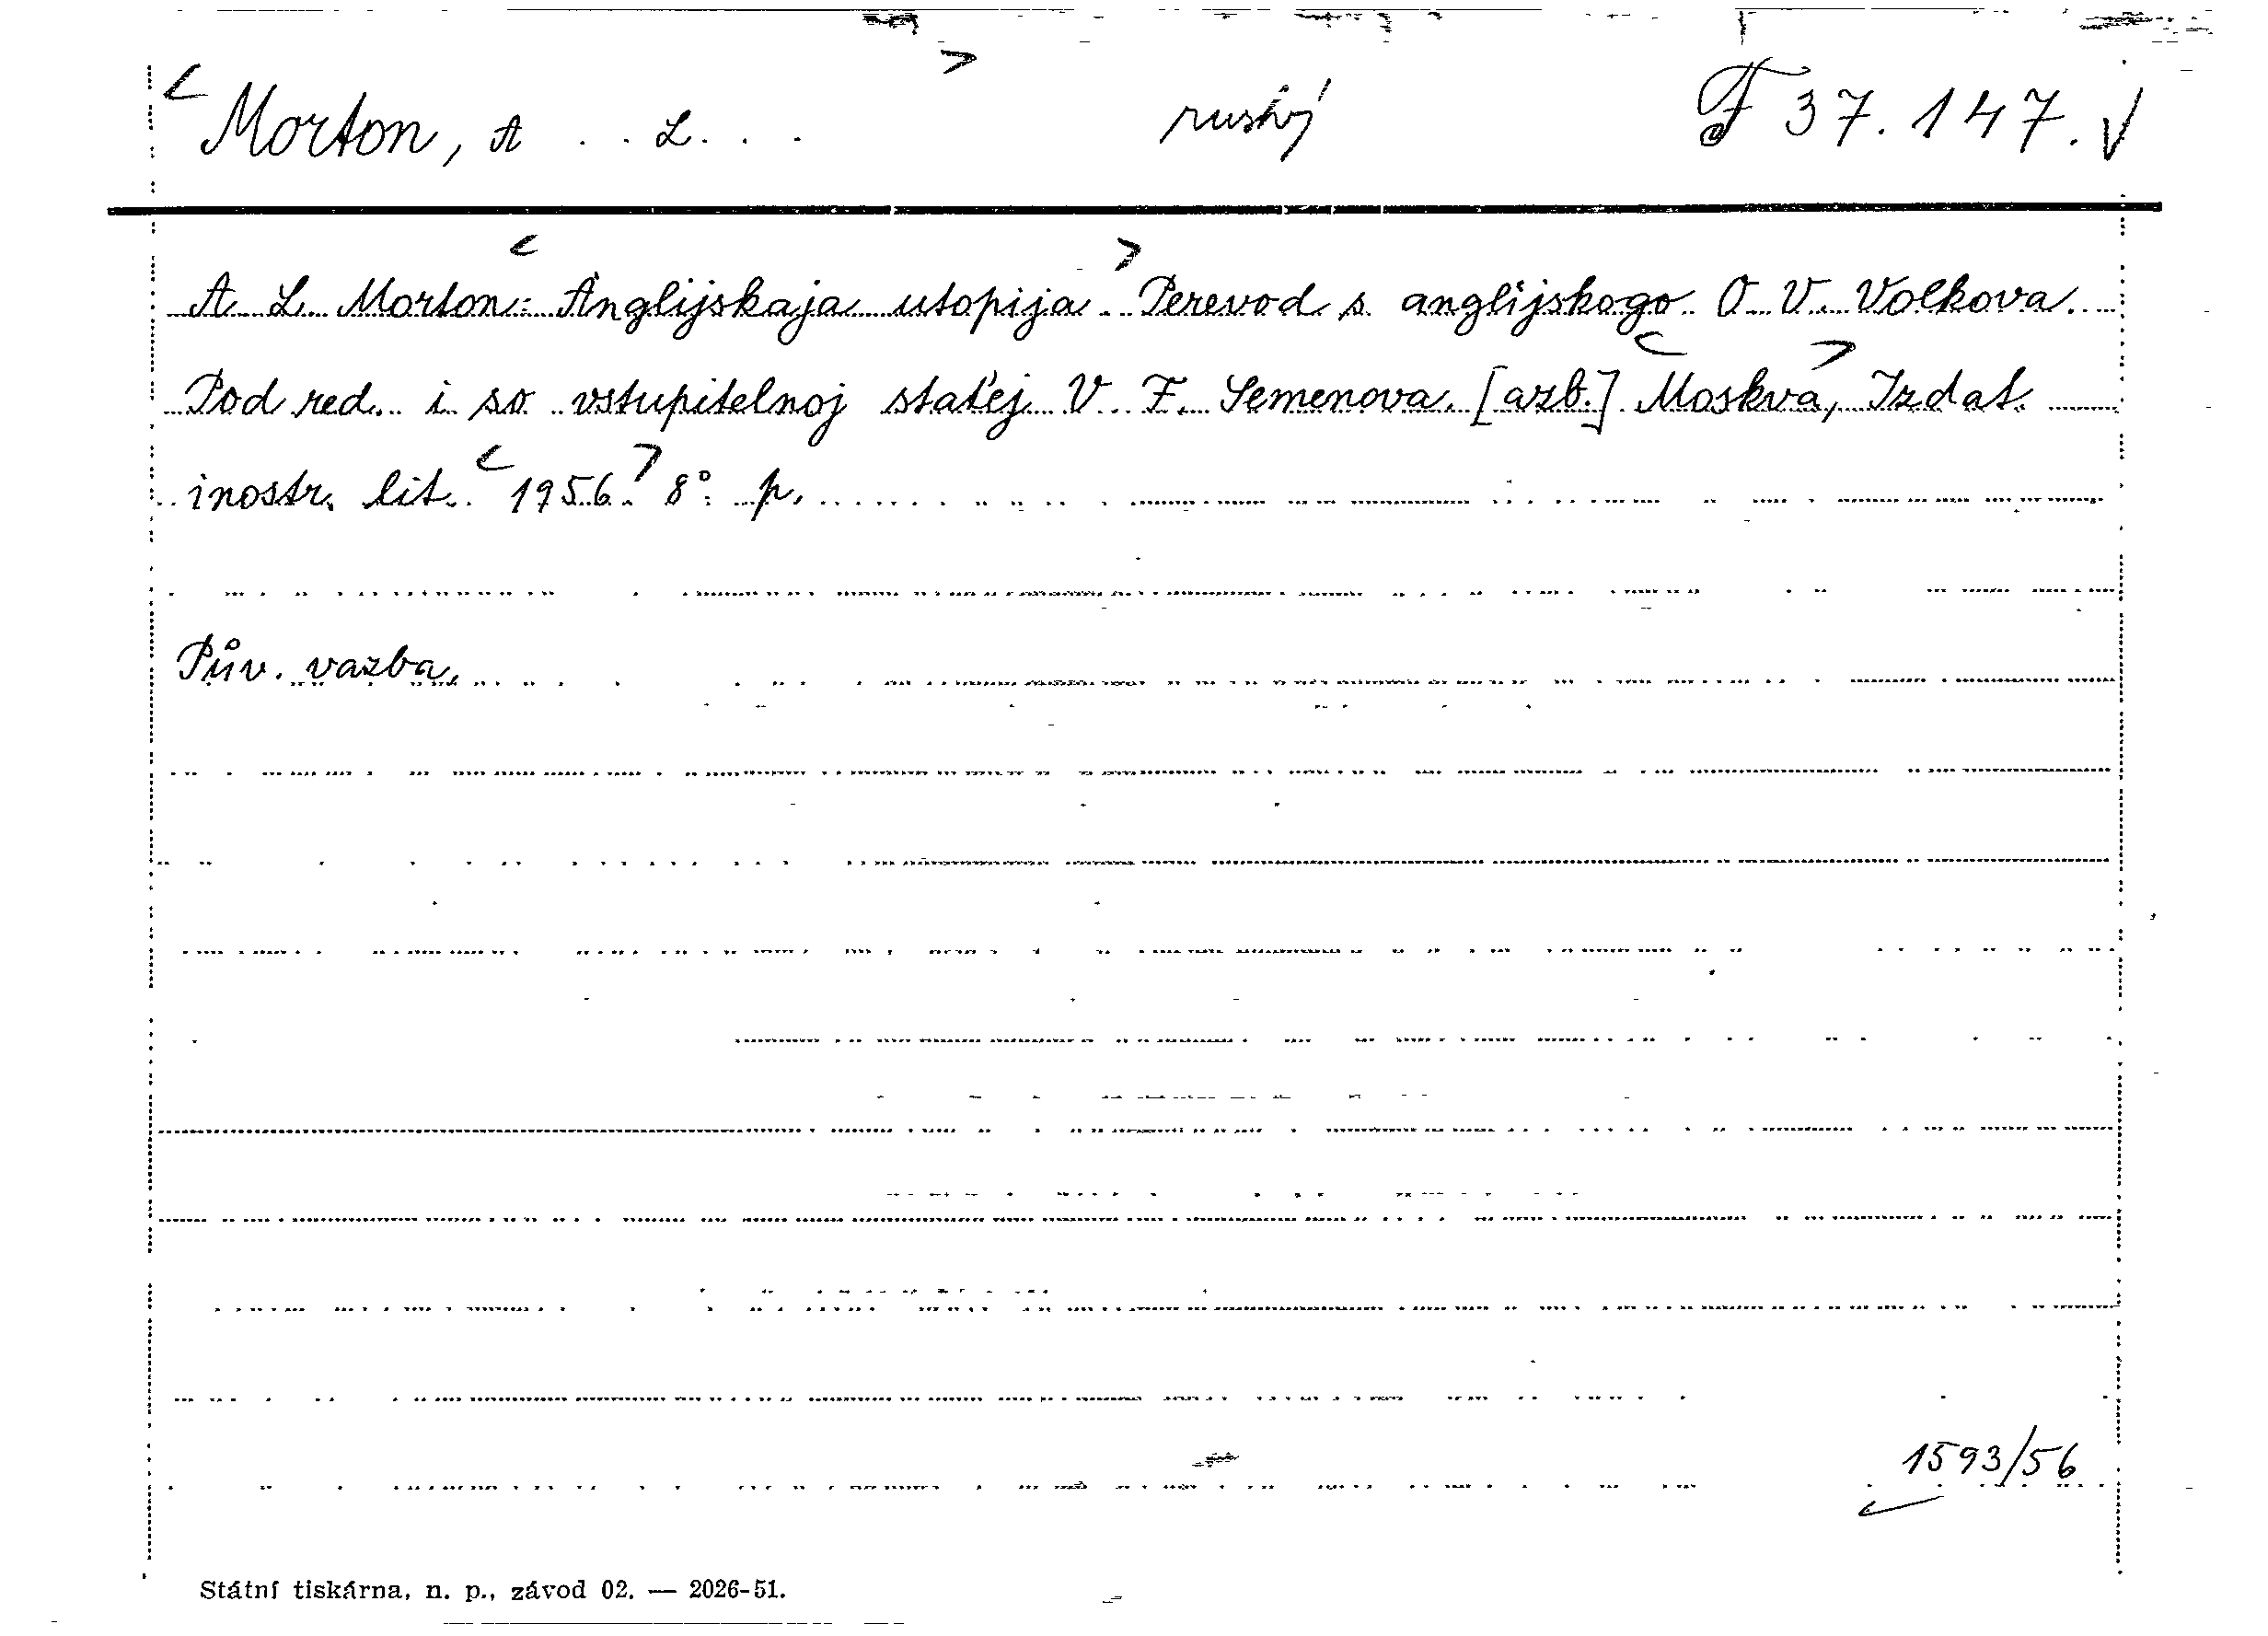 < Morton, A . . L. . . > ruský F 37.147. √
A. L. Morton: < Anglijskaja utopija. > Perevod s anglijskogo O. V. Volkova.
Pod red. i so vstupitelnoj staťej V. F. Semenova. [azb.] < Moskva, > Izdat.
inostr. lit. < 1956. > 8°. p.
Pův. vazba.
1593/56
Státní tiskárna, n. p., závod 02. — 2026-51.